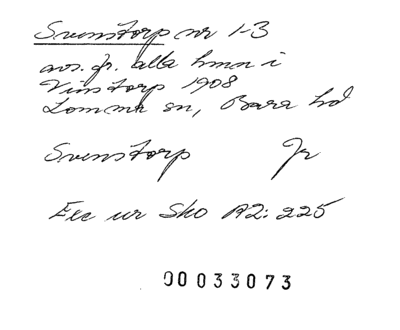 Svenstorp nr 1-3
avs. fr. alla hmn i
Vinstorp 1908
Lomma sn, Bara hd
Svenstorp Jr
Exc ur Sko A2: 225
00033073